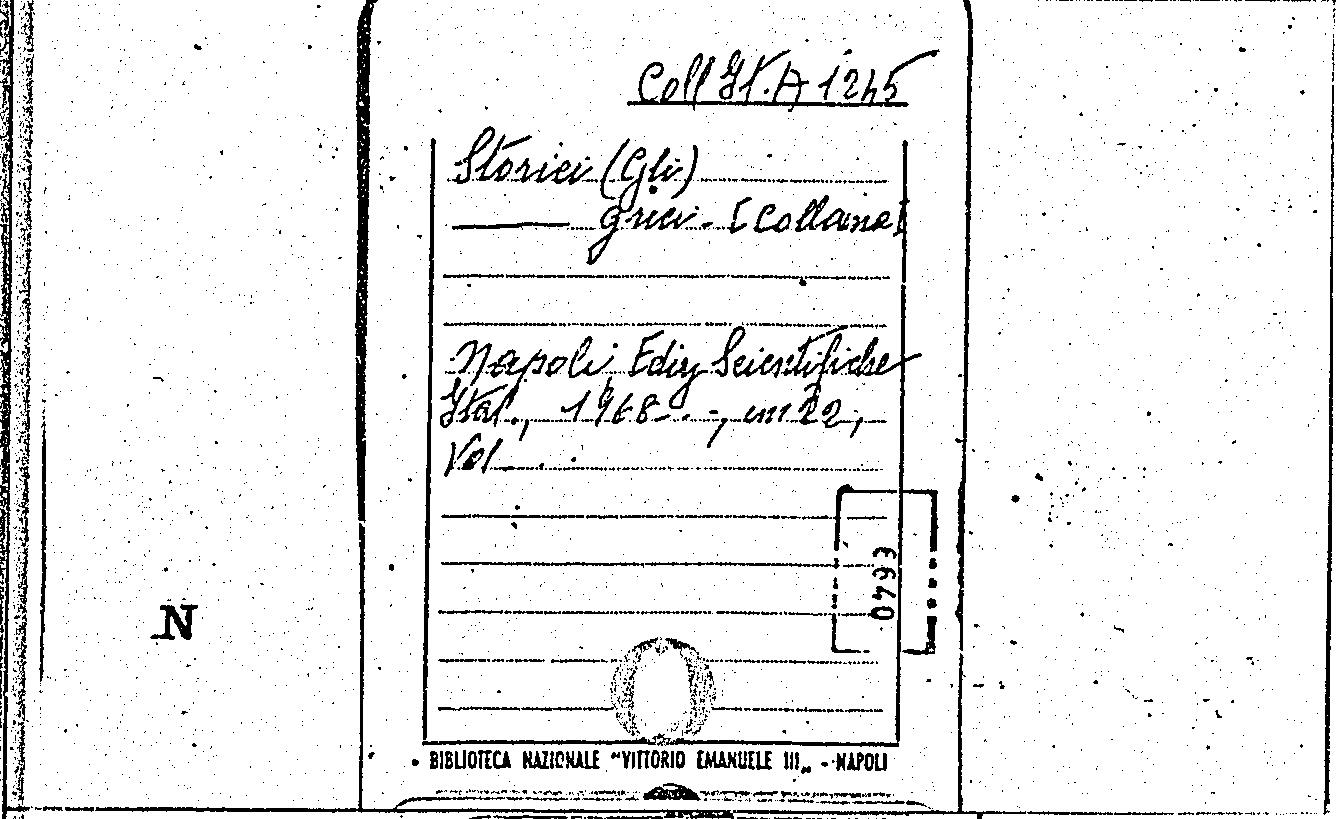 Coll It. A 1245
Storici (Gli)
greci. - [Collana]
Napoli Ediz Scientifiche
Ital., 1968- . -, cm 22,
Vol. . .
0793
N
BIBLIOTECA NAZIONALE "VITTORIO EMANUELE III„ - NAPOLI